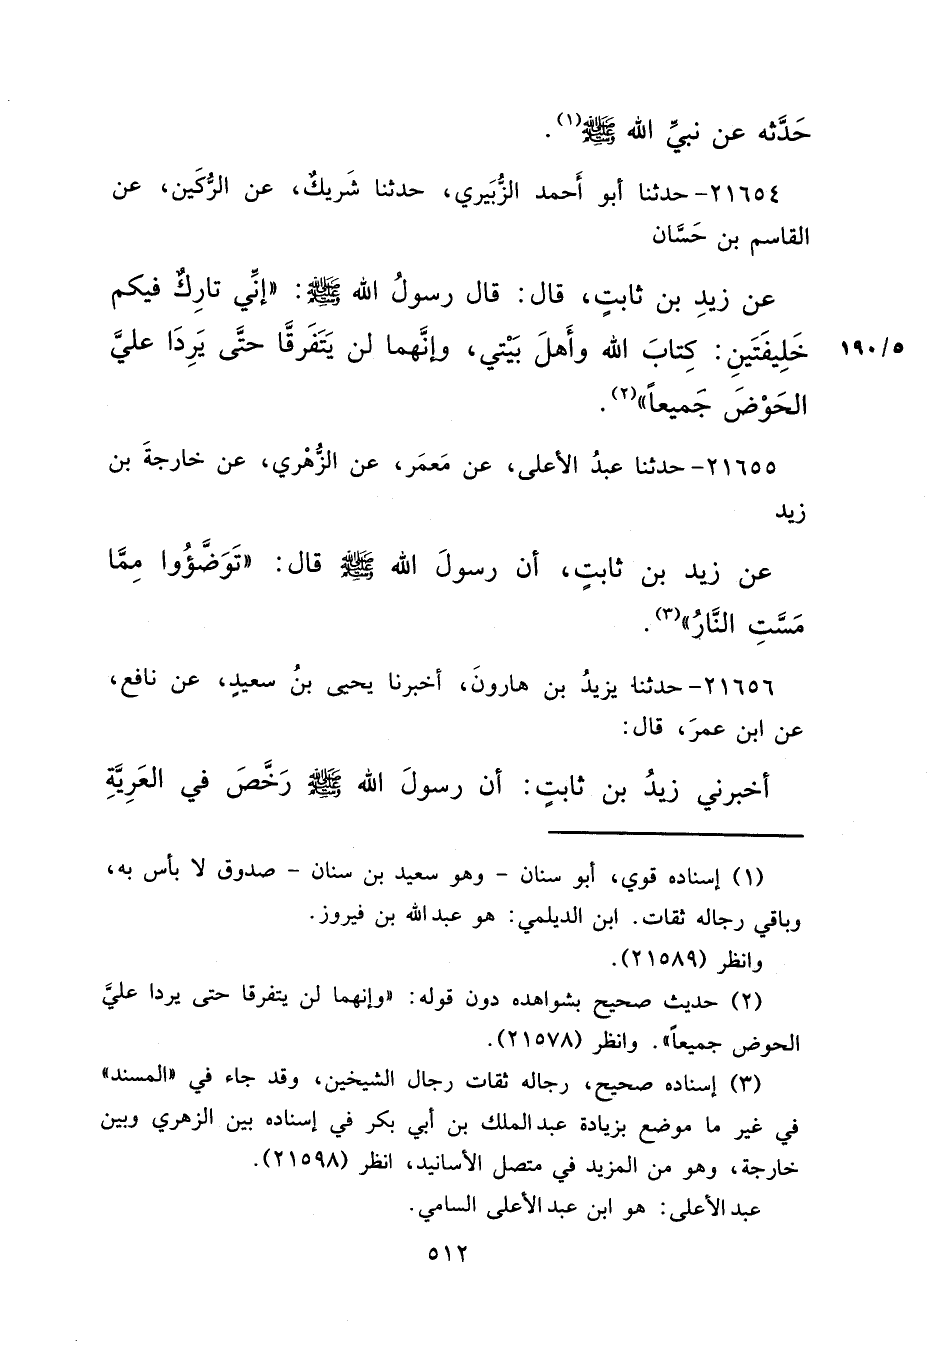 حَدَّثه عن نبيِّ الله ﷺ(١).
٢١٦٥٤- حدثنا أبو أَحمد الزُّبَيري، حدثنا شَريكٌ، عن الرُّكَين، عن
القاسم بن حَسَّان
عن زيدِ بن ثابتٍ، قال: قال رسولُ الله ﷺ: «إنِّي تارِكٌ فيكم
خَلِيفَتَينِ: كِتابَ الله وأَهلَ بَيْتي، وإنَّهما لن يَتَفَرقَّا حتَّى يَرِدَا عليَّ
١٩٠/٥
الحَوْضَ جَميعاً»(٢).
٢١٦٥٥- حدثنا عبدُ الأعلى، عن مَعمَر، عن الزُّهْري، عن خارجةَ بن
زيد
عن زيد بن ثابتٍ، أن رسولَ الله ﷺ قال: «تَوَضَّؤُوا مِمَّا
مَسَّتِ النَّارُ»(٣).
٢١٦٥٦- حدثنا يزيدُ بن هارونَ، أخبرنا يحيى بنُ سعيدٍ، عن نافع،
عن ابن عمرَ، قال:
أخبرني زيدُ بن ثابتٍ: أن رسولَ الله ﷺ رَخَّصَ في العَرِيَّةِ
(١) إسناده قوي، أبو سنان - وهو سعيد بن سنان - صدوق لا بأس به،
وباقي رجاله ثقات. ابن الديلمي: هو عبدالله بن فيروز.
وانظر (٢١٥٨٩).
(٢) حديث صحيح بشواهده دون قوله: «وإنهما لن يتفرقا حتى يردا عليَّ
الحوض جميعاً». وانظر (٢١٥٧٨).
(٣) إسناده صحيح، رجاله ثقات رجال الشيخين، وقد جاء في «المسند»
في غير ما موضع بزيادة عبدالملك بن أبي بكر في إسناده بين الزهري وبين
خارجة، وهو من المزيد في متصل الأسانيد، انظر (٢١٥٩٨).
عبدالأعلى: هو ابن عبدالأعلى السامي.
٥١٢